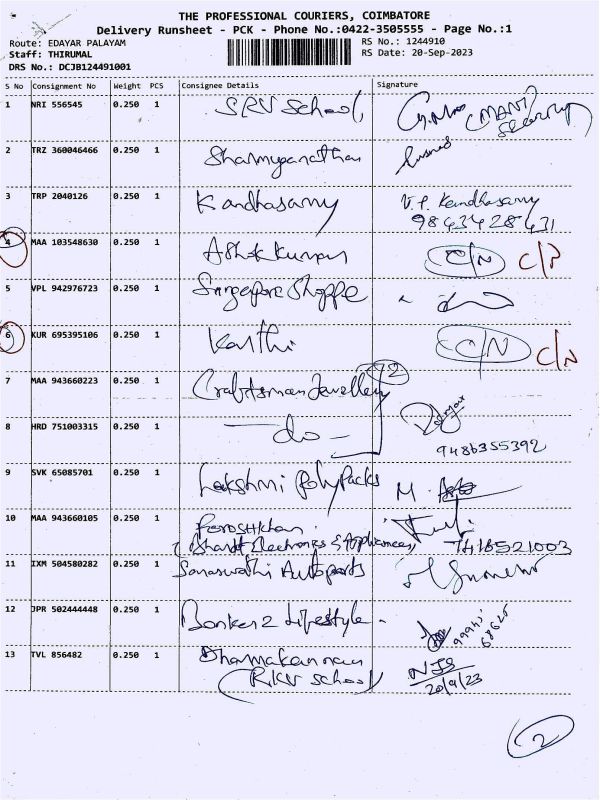 THE PROFESSIONAL COURIERS, COIMBATORE
Delivery Runsheet - PCK - Phone No.:0422-3505555 - Page No.:1
Route: EDAYAR PALAYAM
RS No.: 1244910
Staff: THIRUMAL
RS Date: 20-Sep-2023
DRS No.: DCJB124491001
S No Consignment No Weight PCS Consignee Details Signature
1 NRI 556545 0.250 1 SRV School,
2 TRZ 360046466 0.250 1
3 TRP 2040126 0.250 1 Kandhasamy V.P. Kandhasamy
9843428431
4 MAA 103548630 0.250 1 Ashok Kumar C/N
5 VPL 942976723 0.250 1 Singapore Shoppe
6 KUR 695395106 0.250 1 Karthi C/N C/N
7 MAA 943660223 0.250 1 Craftsman Jewellery 2
8 HRD 751003315 0.250 1 - do -
9486355392
9 SVK 65085701 0.250 1 Lakshmi Poly Packs M.
10 MAA 943660105 0.250 1 Feroskhan.
(Bharat Electronics & Appliances) 7418521003
11 IXM 504580282 0.250 1 Saraswathi Autoparts
12 JPR 502444448 0.250 1 Bonkerz Lifestyle.
13 TVL 856482 0.250 1
(RKV School
20/9/23
2